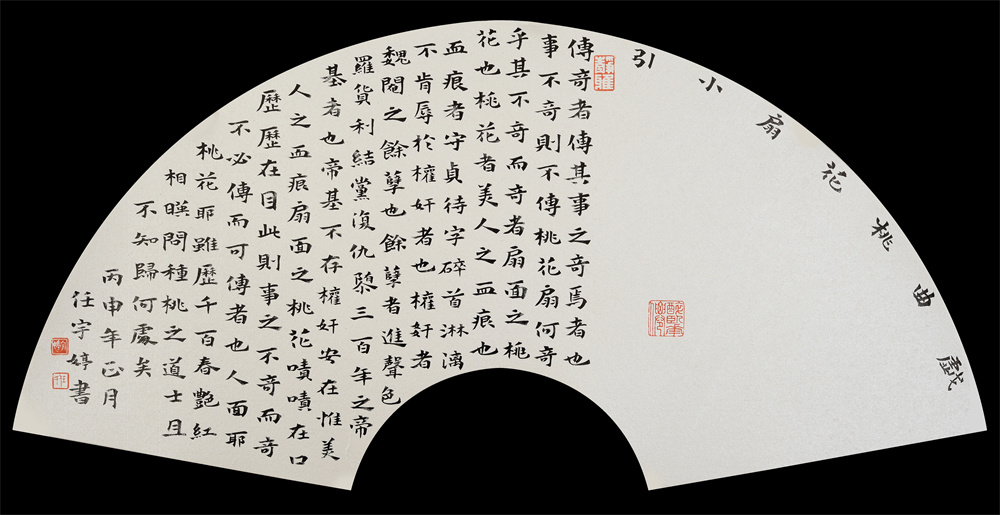 戲曲桃花扇小引
傳奇者傳其事之奇焉者也
事不奇則不傳桃花扇何奇
乎其不奇而奇者扇面之桃
花也桃花者美人之血痕也
血痕者守貞待字碎首淋漓
不肯辱於權奸者也權奸者
魏閹之餘孽也餘孽者進聲色
羅貨利結黨復仇隳三百年之帝
基者也帝基不存權奸安在惟美
人之血痕扇面之桃花嘖嘖在口
歷歷在目此則事之不奇而奇
不必傳而可傳者也人面耶
桃花耶雖歷千百春艷紅
相暎問種桃之道士且
不知歸何處矣
丙申年正月
任宇婷書